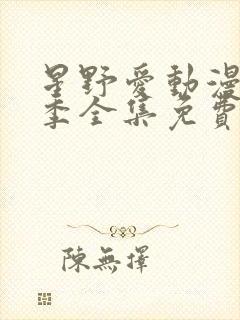 星野愛動漫
季全集免費
陳無擇